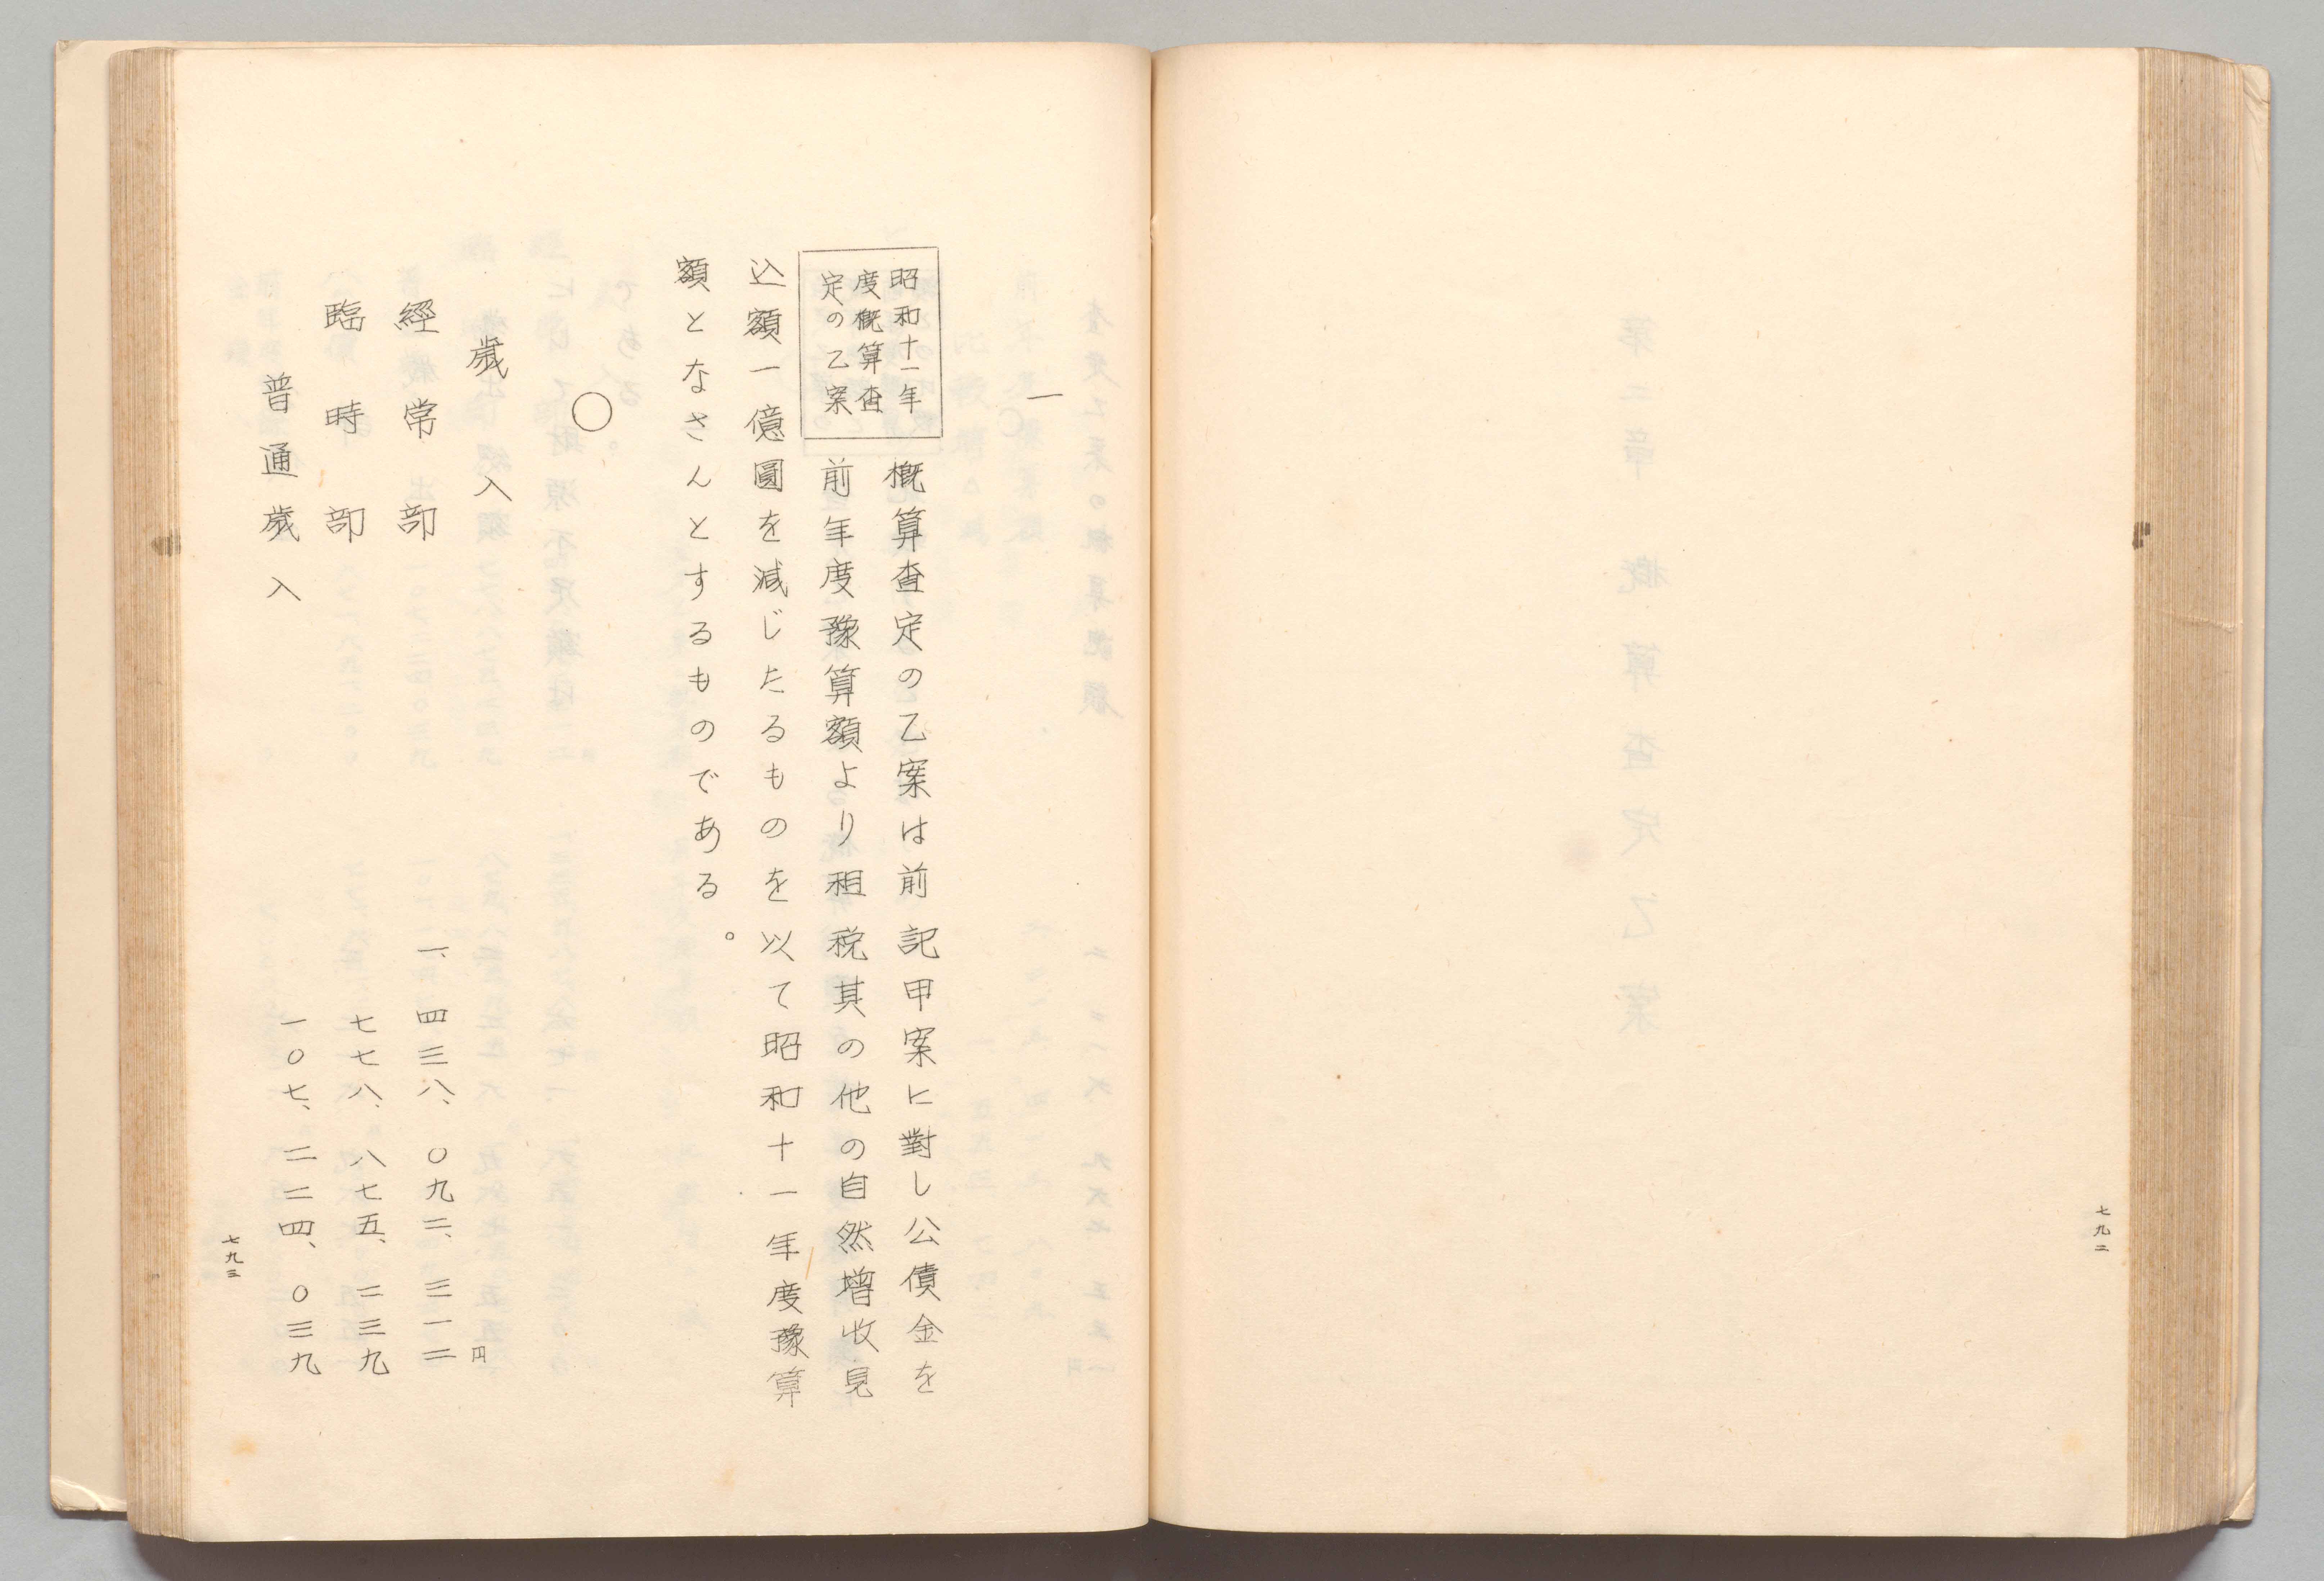 七九二
一
昭和十一年
度概算査
定の乙案
概算査定の乙案は前記甲案に對し公債金を
前年度豫算額より租税其の他の自然増收見
込額一億圓を減じたるものを以て昭和十一年度豫算
額となさんとするものである。
○
歳入
円
經常部 一、四三八、〇九二、三一二
臨時部 七七八、八七五、二三九
普通歳入 一〇七、二二四、〇三九
七九三